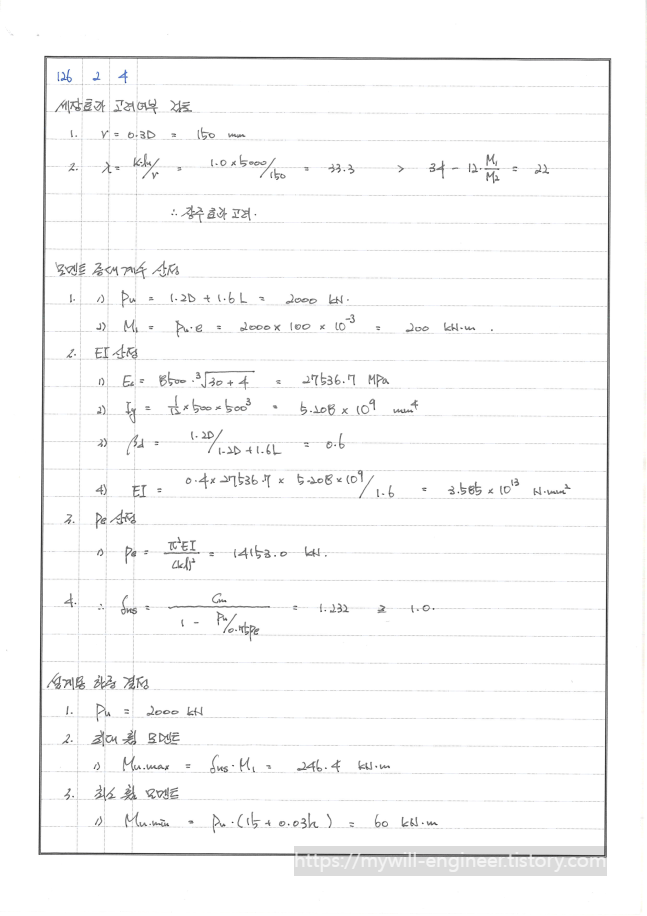 126 2 4
세장효과 고려여부 검토
1. r = 0.3D = 150 mm
2. λ = k·lu/r = 1.0 × 5000/150 = 33.3 > 34 - 12·M₁/M₂ = 22
∴ 장주효과 고려.
모멘트 증대계수 산정
1. 1) Pu = 1.2D + 1.6L = 2000 kN.
2) M₁ = Pu·e = 2000 × 100 × 10⁻³ = 200 kN·m .
2. EI 산정
1) Ec = 8500·³√30 + 4 = 27536.7 MPa
2) Ig = 1/12 × 500 × 500³ = 5.208 × 10⁹ mm⁴
3) βd = 1.2D/1.2D + 1.6L = 0.6
4) EI = 0.4 × 27536.7 × 5.208 × 10⁹/1.6 = 3.585 × 10¹³ N·mm²
3. Pc 산정
1) Pc = π²EI/(kl)² = 14153.0 kN.
4. ∴ δns = Cm/1 - Pu/0.75Pc = 1.232 ≥ 1.0.
설계용 하중 결정
1. Pu = 2000 kN
2. 최대 휨 모멘트
1) Mu.max = δns·M₁ = 246.4 kN·m
3. 최소 휨 모멘트
1) Mu.min = Pu·(15 + 0.03h) = 60 kN·m
https://mywill-engineer.tistory.com